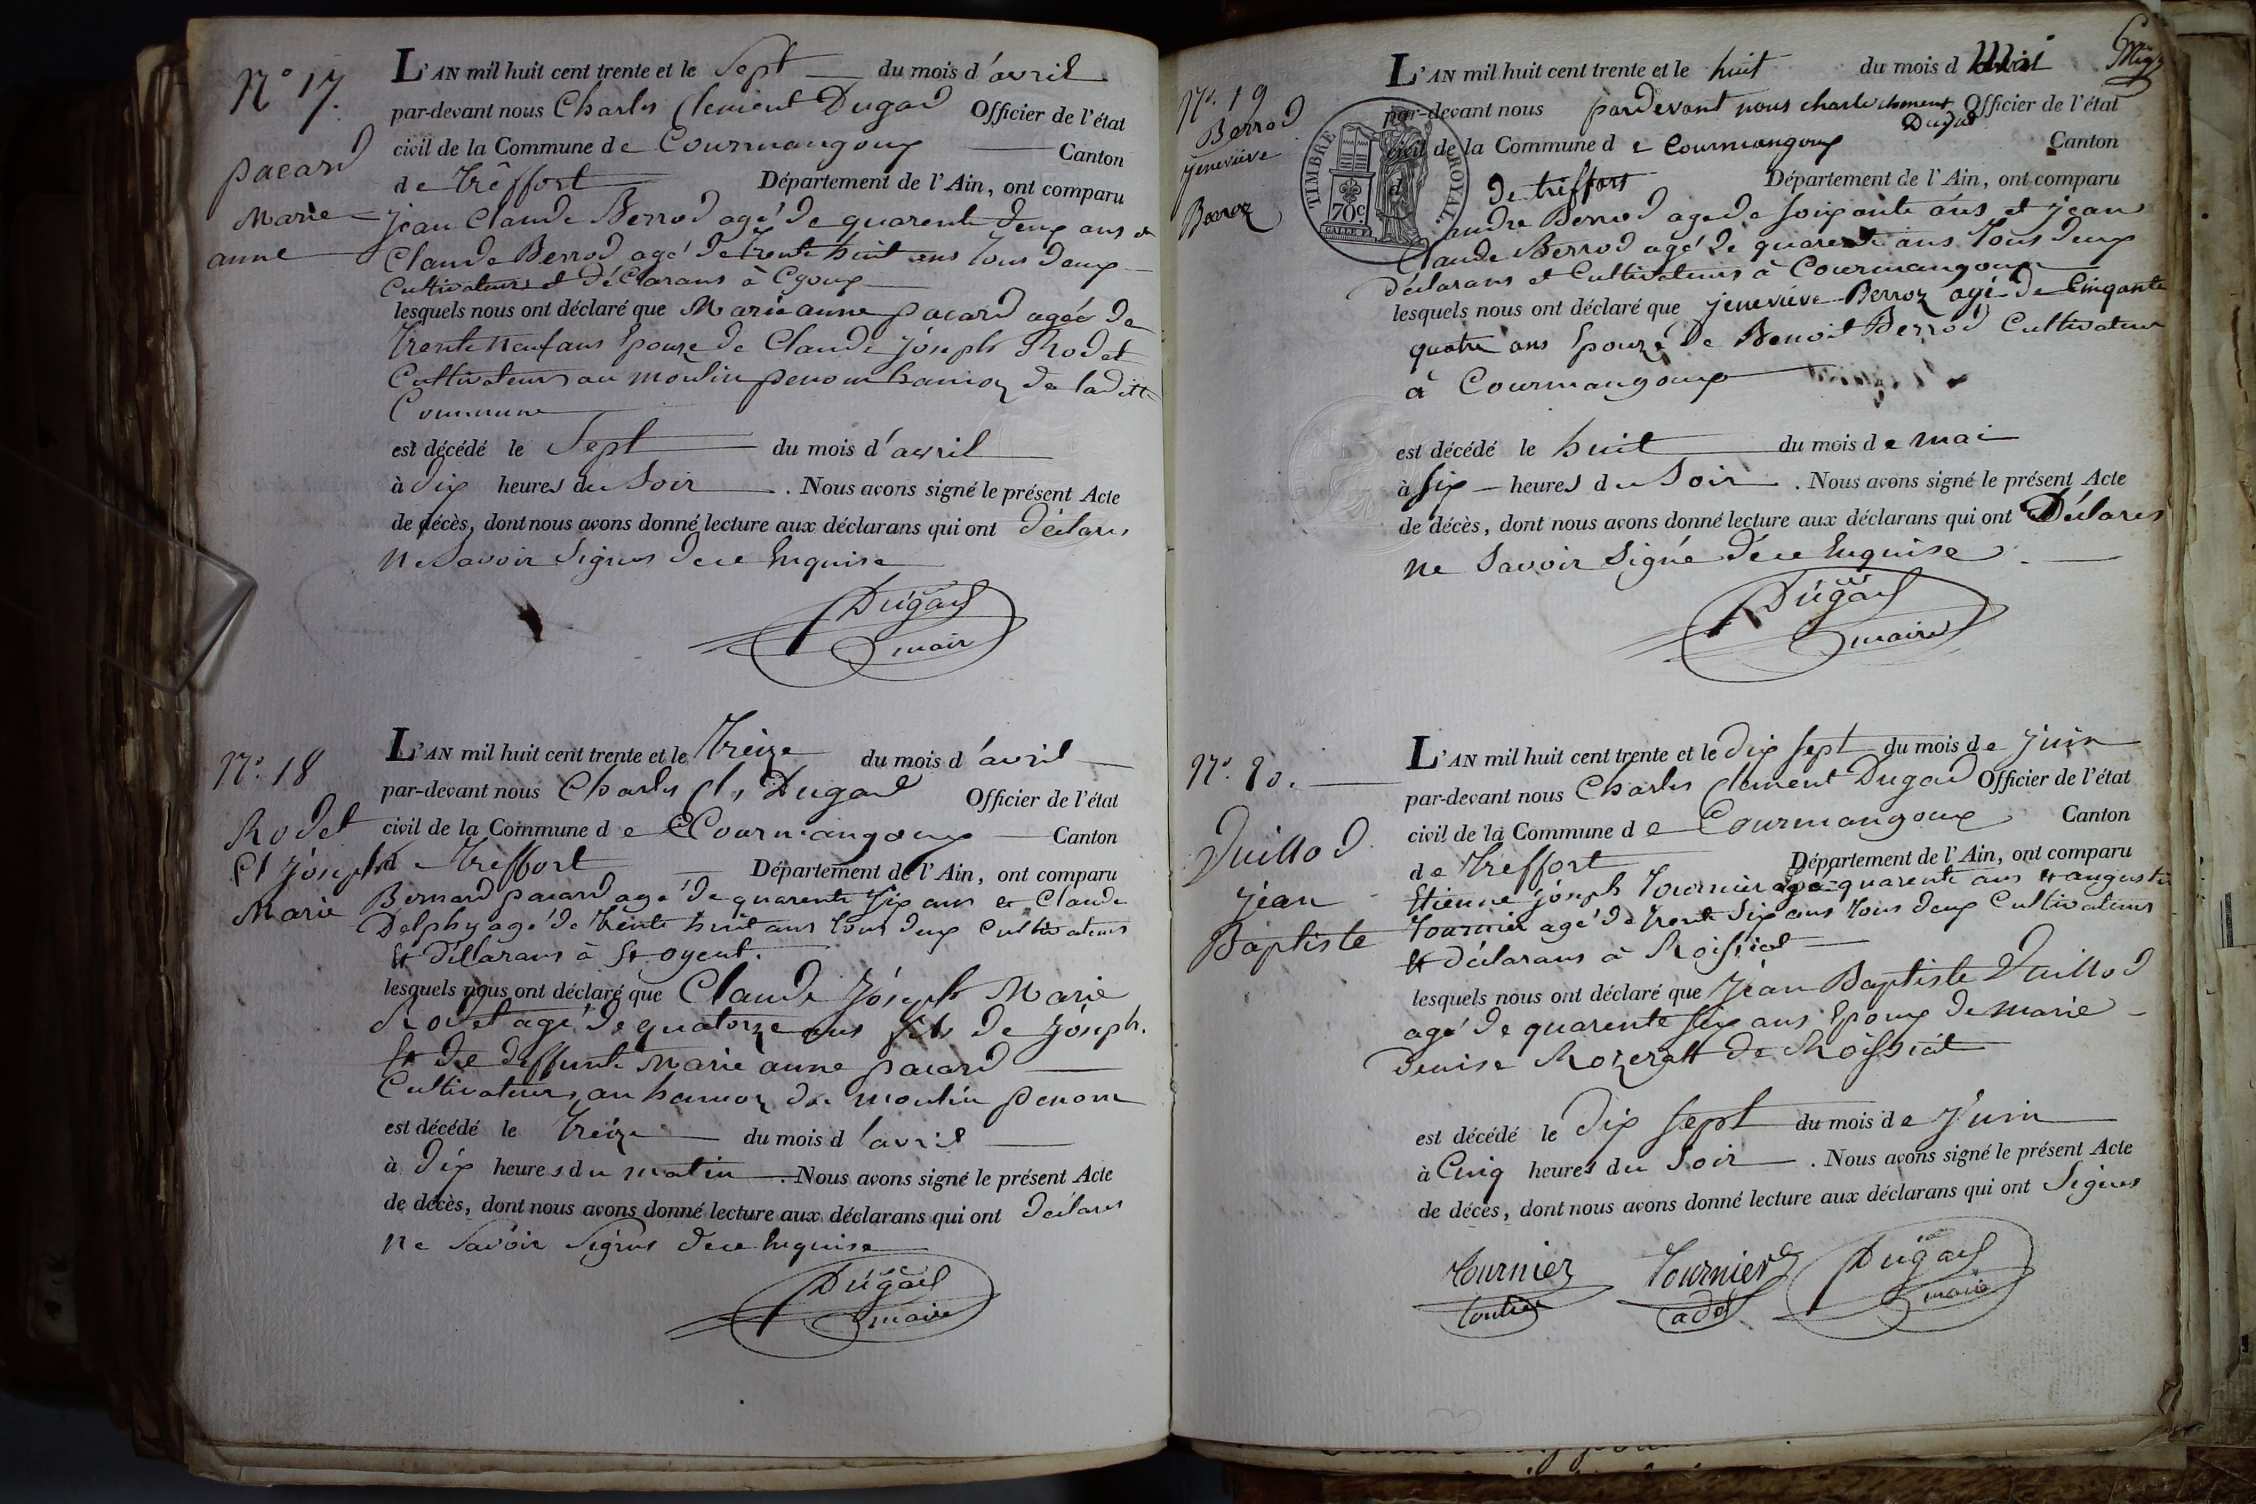 N° 17.
pacard
Marie
anne
L'AN mil huit cent trente et le Sept du mois d'avril
par-devant nous Charles Clement Dugad Officier de l'état
civil de la Commune de Courmangoux Canton
de Tréffort Département de l'Ain, ont comparu
jean Claude Berrod agé de quarente deux ans et
Claude Berrod agé de trente huit ans tous deux
Cultivateurs et déClarans à Cgoux
lesquels nous ont déclaré que Marie anne pacard agée de
trente neuf ans Epouze de Claude jóseph Rodet
Cultivateurs au moulin penom hamoz de laditte
Commune
est décédé le Sept du mois d'avril
à dix heures du Soir. Nous avons signé le présent Acte
de décès, dont nous avons donné lecture aux déclarans qui ont déclarés
ne Savoir Signés dece Enquise
Dugad
mair
N°. 18
Rodet
Cl jóseph
Marie
L'AN mil huit cent trente et le Treize du mois d'avril
par-devant nous Charles Cl. Dugad Officier de l'état
civil de la Commune de Courmangoux Canton
de Treffort Département de l'Ain, ont comparu
Bernard pacard agé de quarente Six ans et Claude
Delphy agé de trente huit ans tous deux Cultivateurs
et Déllarans à St oyent.
lesquels nous ont déclaré que Claude Jóseph Marie
Rodet agé de quatorze ans fils de jóseph.
Et de deffunte Marie anne pacard
Cultivateurs au hamoz du moulin penom
est décédé le treize du mois d'avril
à dix heures du matin. Nous avons signé le présent Acte
de décès, dont nous avons donné lecture aux déclarans qui ont déclarés
ne Savoir Signés dece Enquise
Dugad
maire
N°. 19
Berrod
jeneviéve
Berroz
TIMBRE ROYAL.
70c
L'AN mil huit cent trente et le huit du mois d Mai
par-devant nous pardevant nous charle clement Officier de l'état
Dugad
civil de la Commune de Courmangoux Canton
de treffort Département de l'Ain, ont comparu
andre Berrod age de Soixante ans et jean
Claude Berrod agé de quarente ans tous deux
déclarans et Cultivateurs à Courmangoux
lesquels nous ont déclaré que jeneviéve Berroz agé de Cinqante
quatre ans Epouzé de Benoit Berrod Cultivateur
à Courmangoux
est décédé le huit du mois de mai
à Six heures du Soir. Nous avons signé le présent Acte
de décès, dont nous avons donné lecture aux déclarans qui ont Déclares
ne Savoir Signé déce Enquise
Dugad
maire
N°. 20.
Vuillod
jean
Baptiste
L'AN mil huit cent trente et le dix Sept du mois de juin
par-devant nous Charles Clement Dugad Officier de l'état
civil de la Commune de Courmangoux Canton
de Treffort Département de l'Ain, ont comparu
Etienne jóseph Tournier agé quarente ans et augustin
Tournier agé de trente Six ans tous deux Cultivateurs
et déclarans à Roissiat
lesquels nous ont déclaré que Jéan Baptiste Vuillod
agé de quarente Six ans Epoux de marie
Denise Rozeratt de Roissiat
est décédé le dix Sept du mois de juin
à Cinq heures du Soir. Nous avons signé le présent Acte
de décès, dont nous avons donné lecture aux déclarans qui ont Signés
tournier Tournier Dugad
adj maire